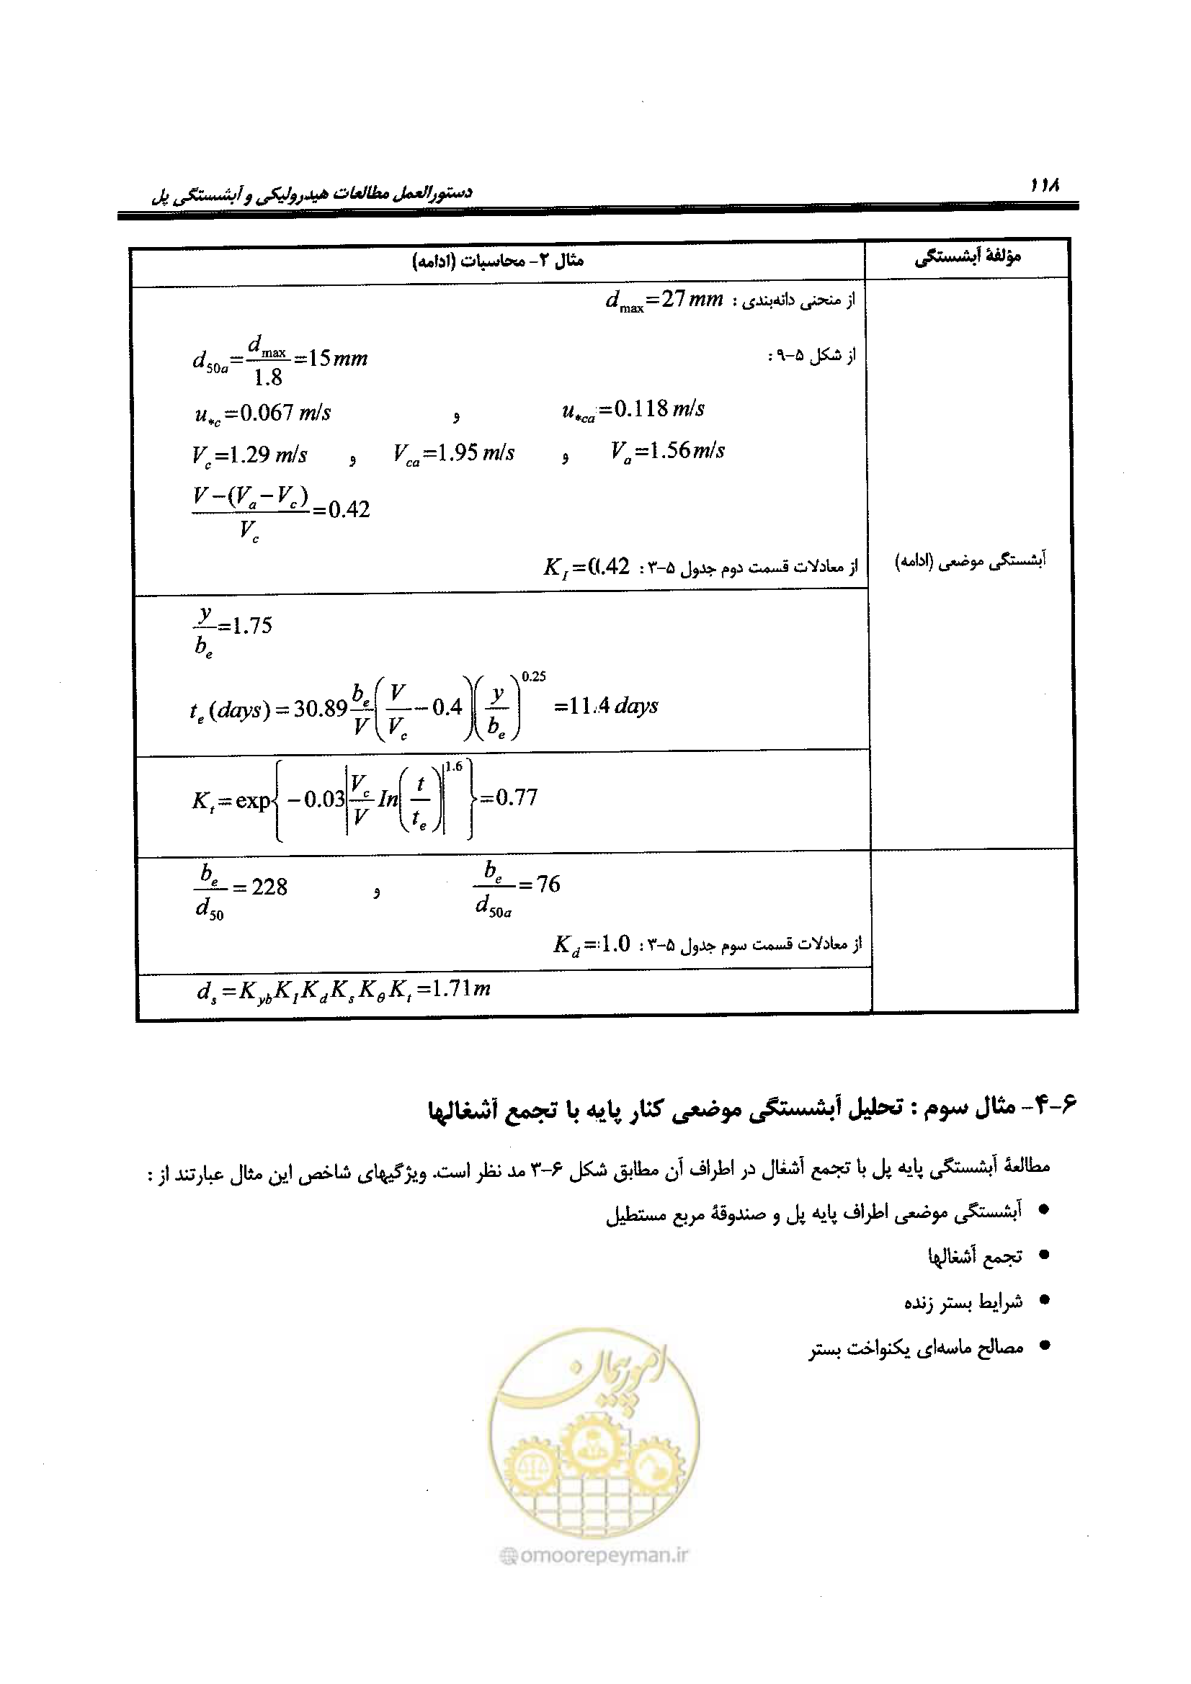 ۱۱۸
دستورالعمل مطالعات هیدرولیکی و آبشستگی پل
مؤلفهٔ آبشستگی
مثال ۲- محاسبات (ادامه)
آبشستگی موضعی (ادامه)
از منحنی دانه‌بندی : d_max = 27 mm
از شکل ۵-۹ :
d_50a = d_max / 1.8 = 15 mm
u_*c = 0.067 m/s و u_*ca = 0.118 m/s
V_c = 1.29 m/s و V_ca = 1.95 m/s و V_a = 1.56 m/s
(V − (V_a − V_c)) / V_c = 0.42
از معادلات قسمت دوم جدول ۵-۳ : K_I = 0.42
y / b_e = 1.75
t_e (days) = 30.89 (b_e / V) (V / V_c − 0.4) (y / b_e)^0.25 = 11.4 days
K_t = exp{ −0.03 | (V_c / V) In (t / t_e) |^1.6 } = 0.77
b_e / d_50 = 228 و b_e / d_50a = 76
از معادلات قسمت سوم جدول ۵-۳ : K_d = 1.0
d_s = K_yb K_I K_d K_s K_θ K_t = 1.71 m
۶-۴- مثال سوم : تحلیل آبشستگی موضعی کنار پایه با تجمع آشغالها
مطالعهٔ آبشستگی پایه پل با تجمع آشغال در اطراف آن مطابق شکل ۶-۳ مد نظر است. ویژگیهای شاخص این مثال عبارتند از :
● آبشستگی موضعی اطراف پایه پل و صندوقهٔ مربع مستطیل
● تجمع آشغالها
● شرایط بستر زنده
● مصالح ماسه‌ای یکنواخت بستر
امور پیمان
@omoorepeyman.ir